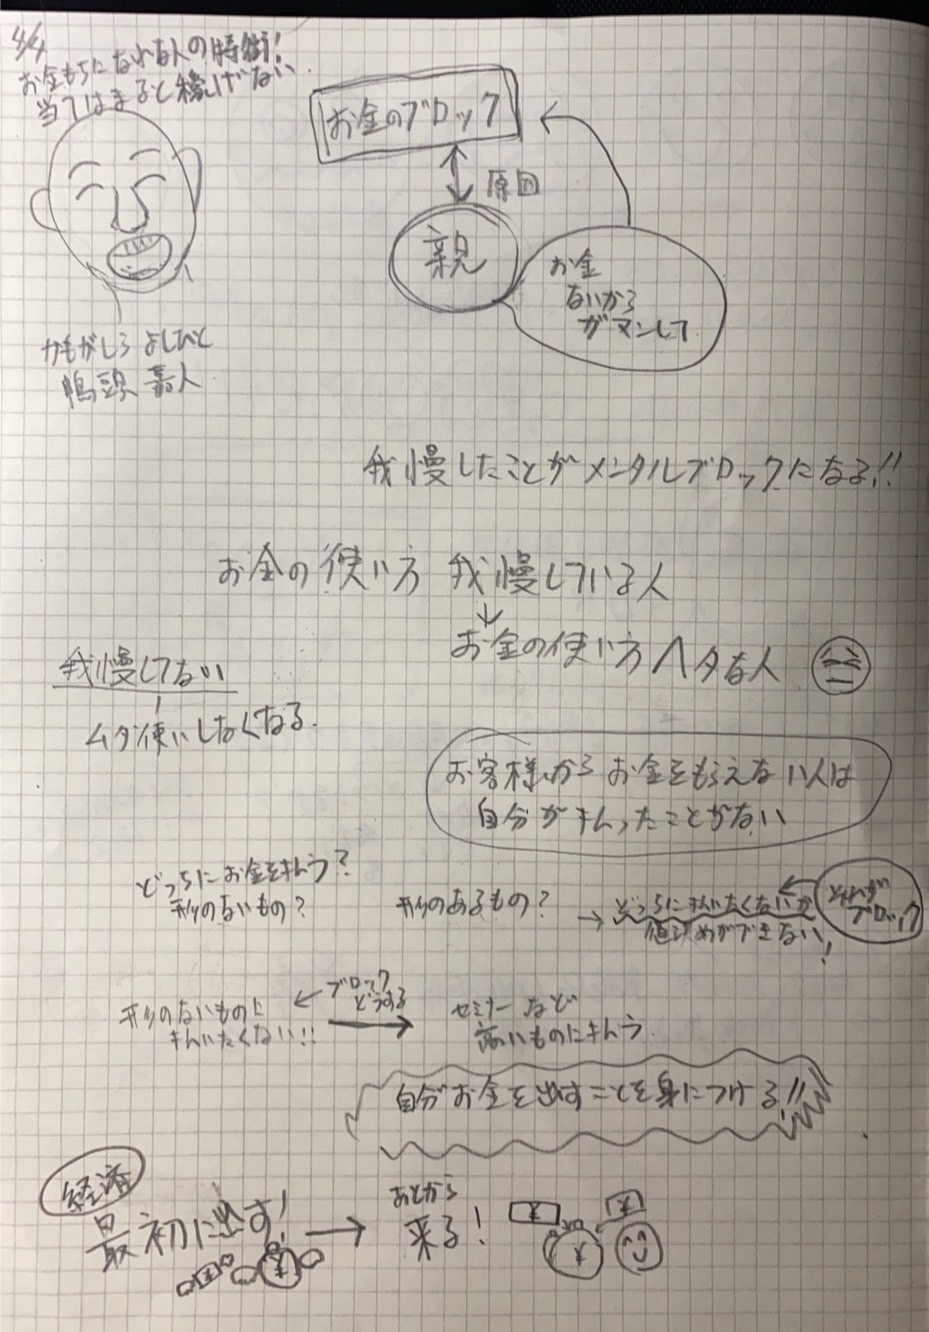 4/4
お金もちになれる人の特徴!
当てはまると稼げない
お金のブロック
原因
親
お金
ないから
ガマンして
かもがしら よしひと
鴨頭 嘉人
我慢したことがメンタルブロックになる!!
お金の使い方 我慢している人
お金の使い方ヘタな人
我慢してない
ムダ使いしなくなる.
お客様からお金をもらえない人は
自分が払ったことがない
どっちにお金を払う?
形のないもの?
形のあるもの?
→どっちに払いたくないか
値決めができない!
それが
ブロック
形のないものに
払いたくない!!
ブロック
どうする
セミナーなど
高いものに払う.
自分お金を出すことを身につける!!
経済
最初に出す!
あとから
来る!
¥
¥
¥
¥